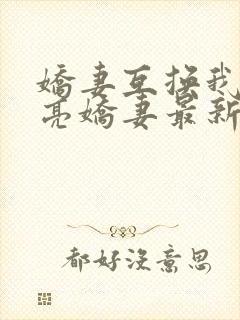 嬌妻互换我
亮嬌妻最新
都好沒意思